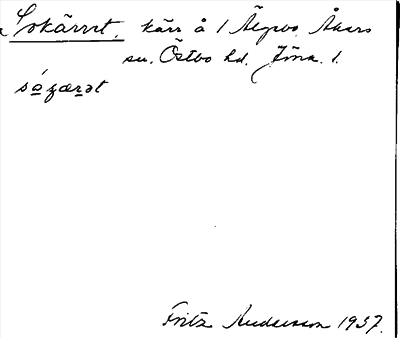 Sokärret, kärr å 1 Älgbo, Åkers
sn. Östbo hd. Jöns. l.
Fritz Andersson 1937.